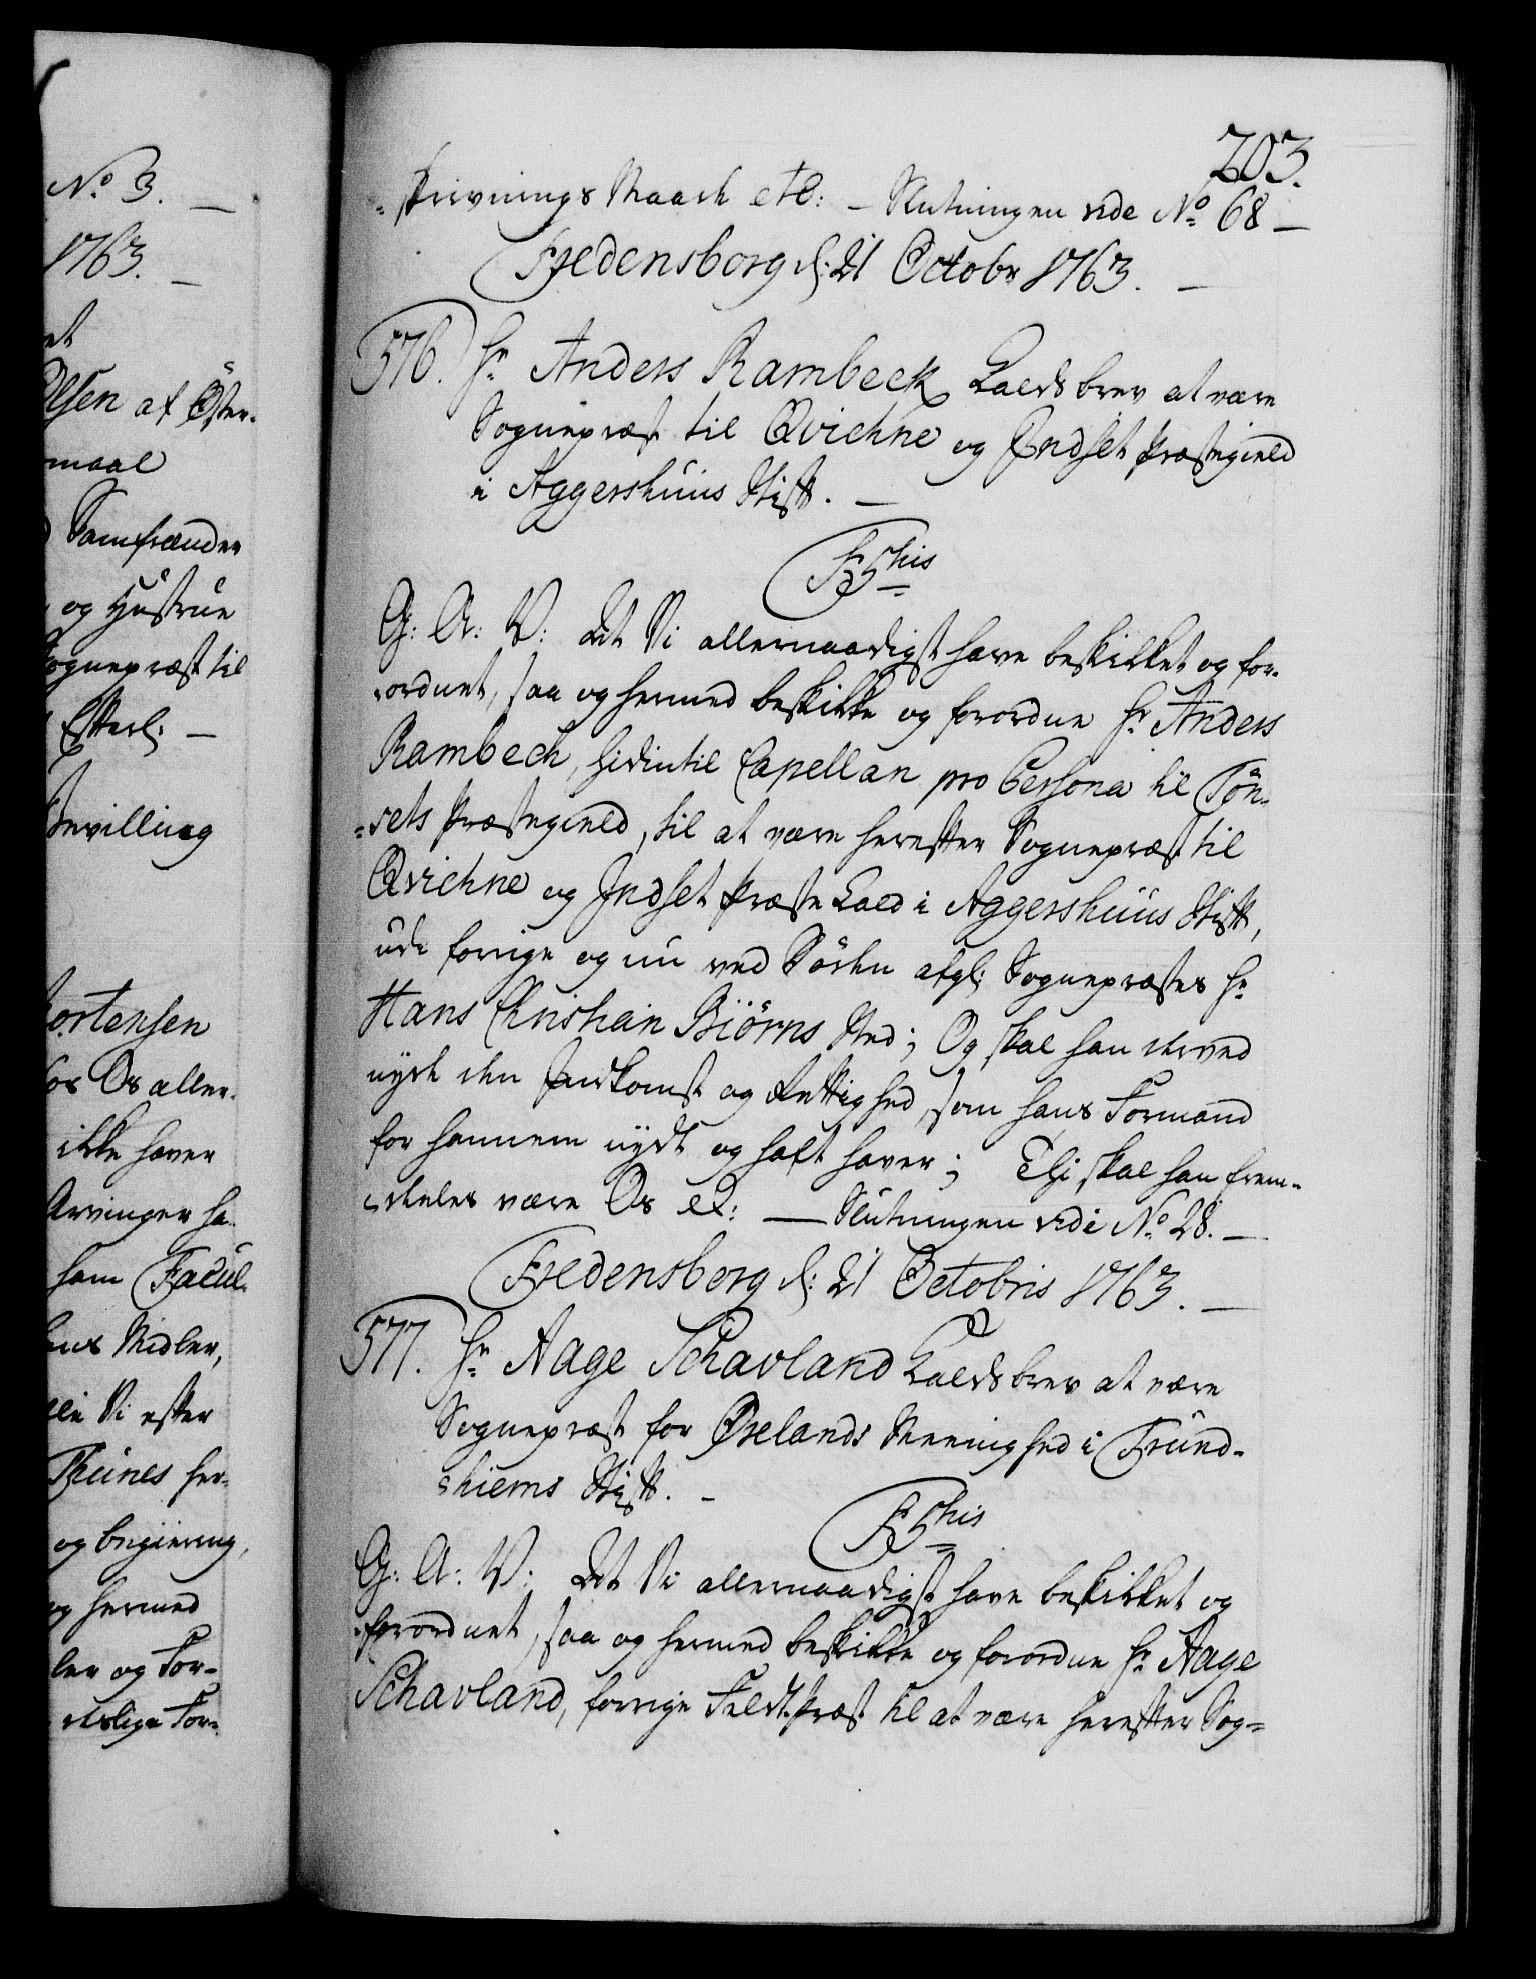 No. 3. —
1763. —
et
Olsen af Öster-
maal
Samfrænder
og Hustrue
Sognepræst til
Efterl: —
Bevilling
Mortensen
for Os aller-
ikke haver
Arvinger ha-
ham Facul-
hans Midler,
Vi efter
Thünes her-
og begiering,
og hermed
ler og For-
For-
203.
skrivnings Maade etc: — Slutningen vide No. 68 —
Fredensborg d: 21 Octobr 1763. —
576. Hr. Anders Rambeck Kaldsbrev at være
Sognepræst til Qvichne og Indset Præstegield
i Aggershuus Stift. —
F5this
G: A: V: At Vi allernaadigst have beskikket og for-
-ordnet, saa og hermed beskikke og forordne Hr. Anders
Rambech, hidintil Capellan pro Persona til Tön-
=sets Præstegield, til at være herefter Sognepræst til
Qvichne og Indset Præste Kald i Aggershuus Stift,
udi forrige og nu ved Döden afgl: Sognepræstes Hr.
Hans Christian Biörns Sted; Og skal han derved
nyde den Indkomst og Rettighed, som hans Formand
for hannem nydt og haft haver; Thi skal han frem-
-deeles være Os et: — Slutningen vide No. 28. —
Fredensborg d: 21 Octobris 1763. —
577. Hr. Aage Schavland Kaldsbrev at være
Sognepræst for Ørelands Meenighed i Trund-
hiems Stift. —
F5this
G: A: V: At Vi allernaadigst have beskikket og
-forordnet, saa og hermed beskikke og forordne Hr. Aage
Schavland, forrige Feldt-Præst til at være herefter Sog-